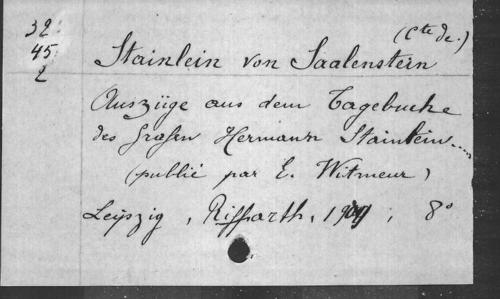 32
45
2
(Cte de.)
Stainlein von Saalenstein
Auszüge aus dem Tagebuche
des Grafen Hermann Stainlein....
(publié par E. Witmeur)
Leipzig, Riffarth, 19 ; 8°